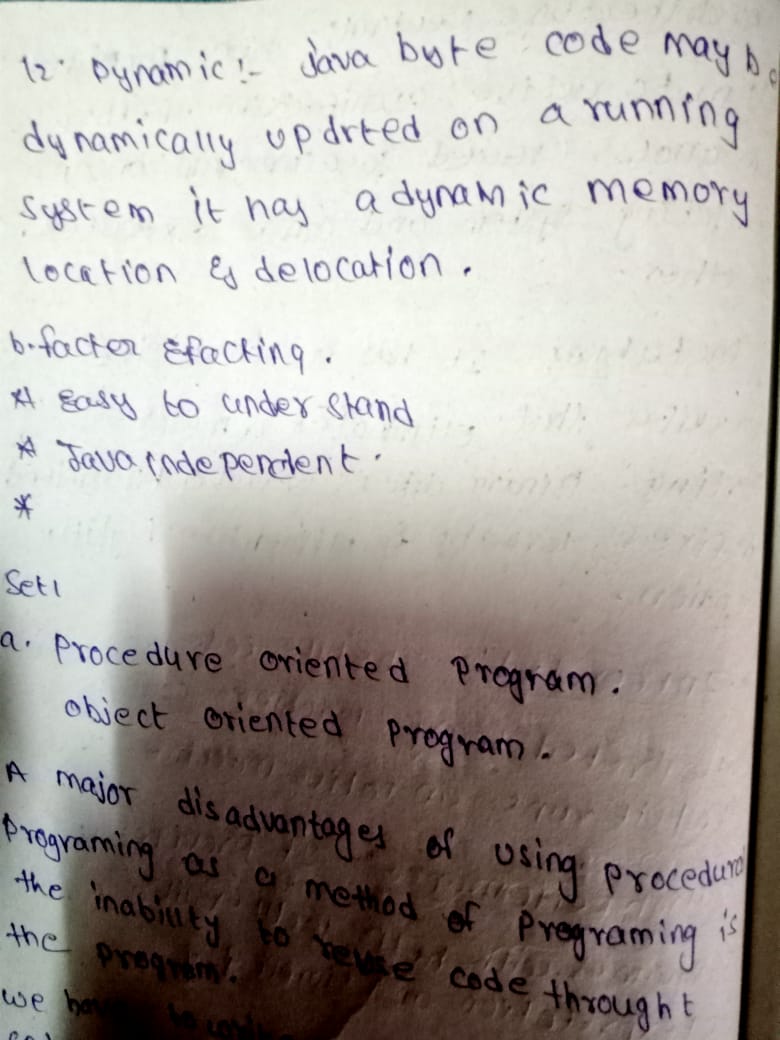 12. Dynamic :- Java byte code may be
dynamically updrted on a running
system it has a dynamic memory
location & delocation.
b. factor Efacting.
* Easy to under stand
* Java independent.
*
Set1
a. Procedure oriented Program.
object oriented program.
A major disadvantages of using procedural
programing as a method of programing is
the inability to reuse code throught
the program.
we have to